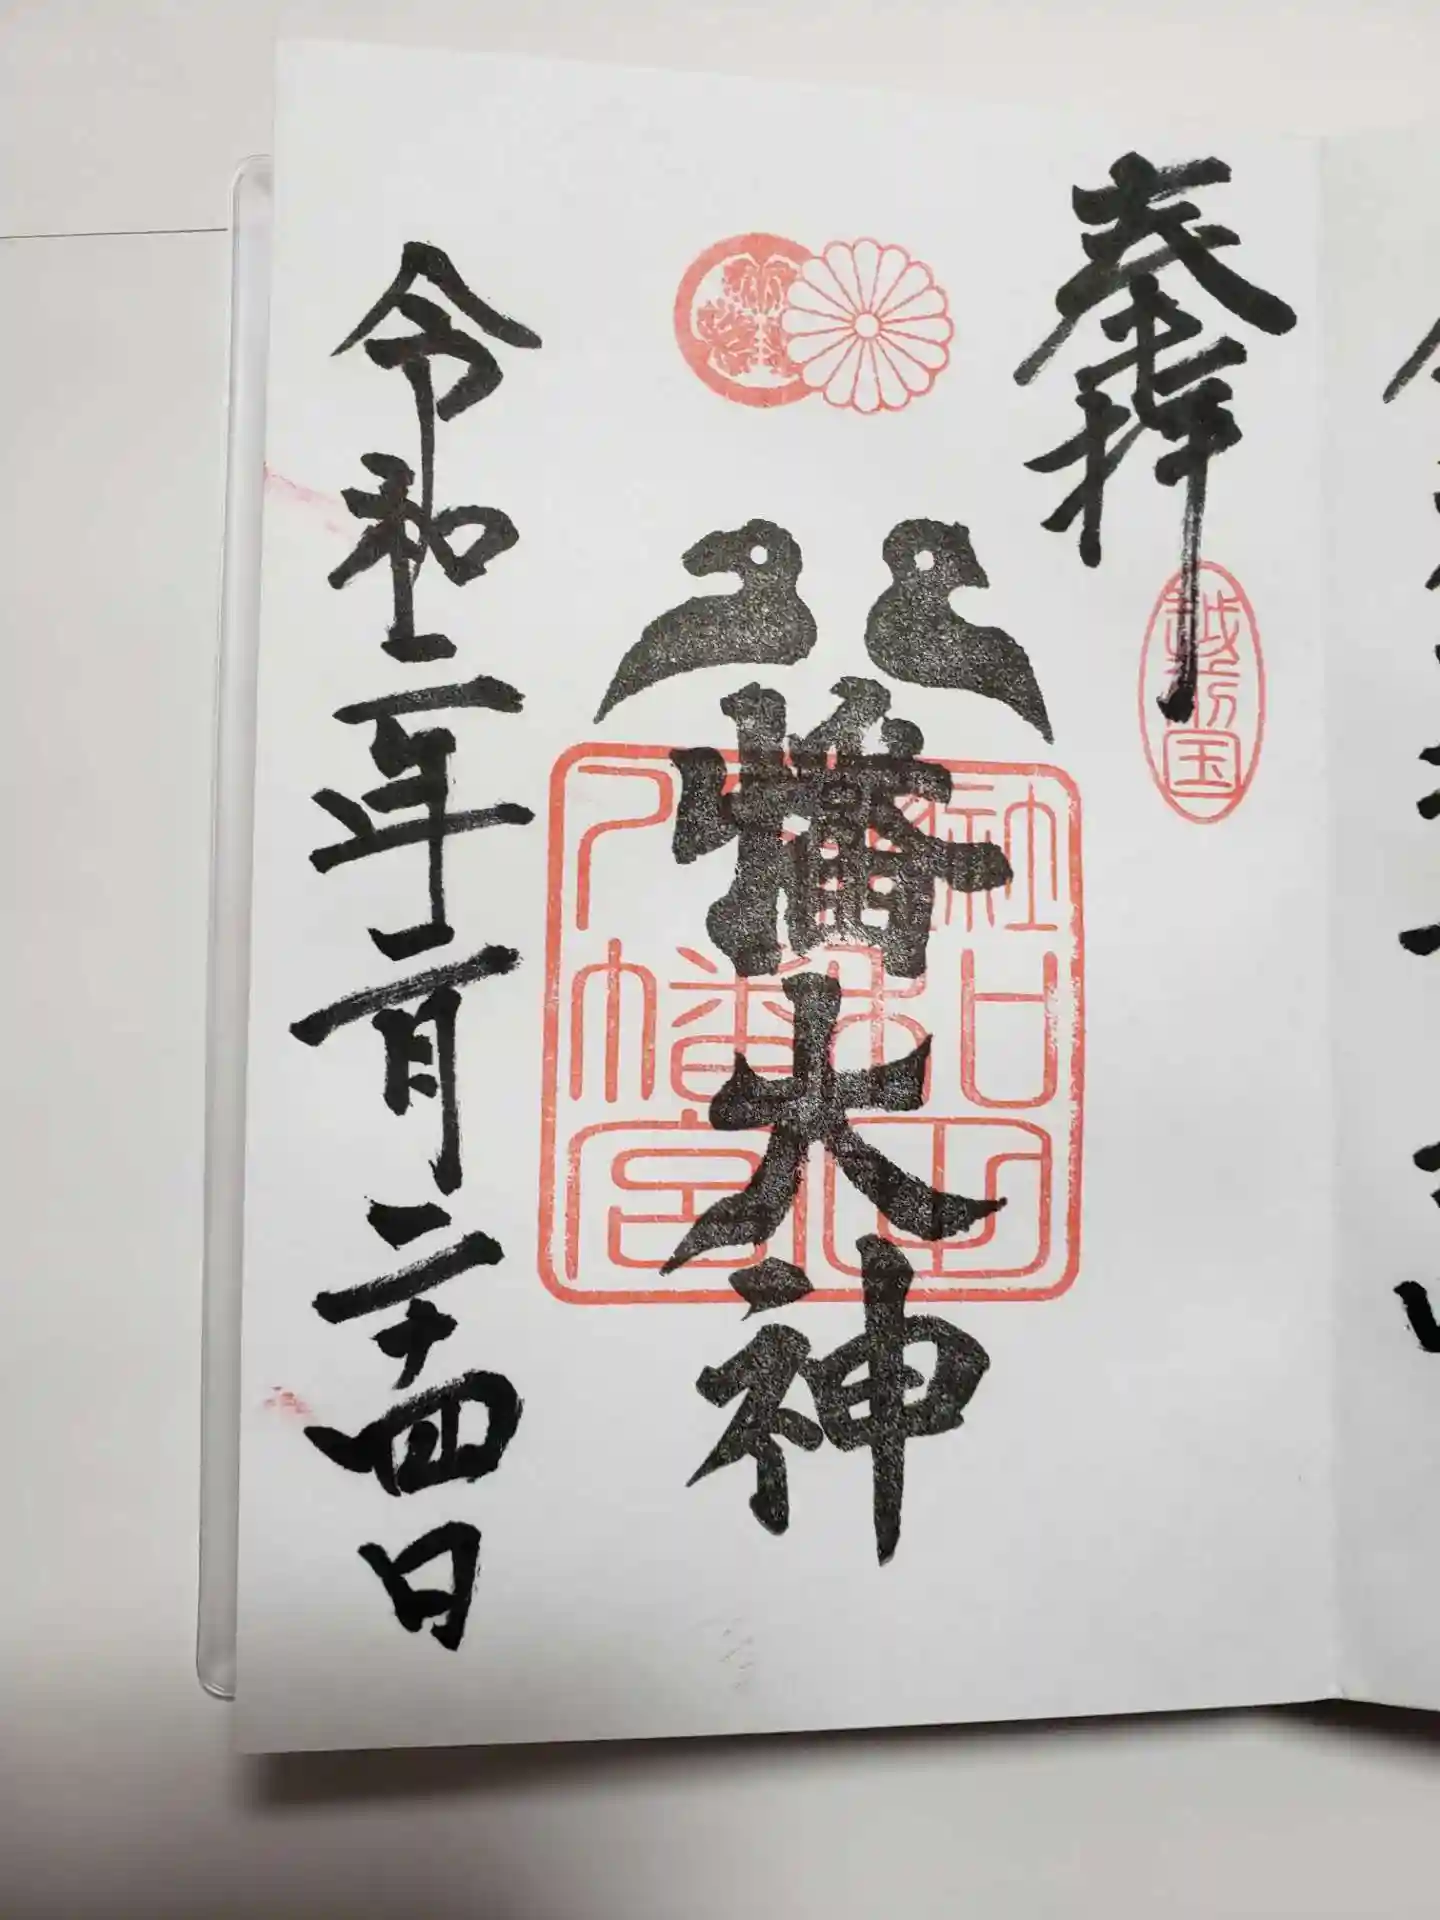 奉拝
越前国
八幡大神
八幡宮
令和二年二月二十四日